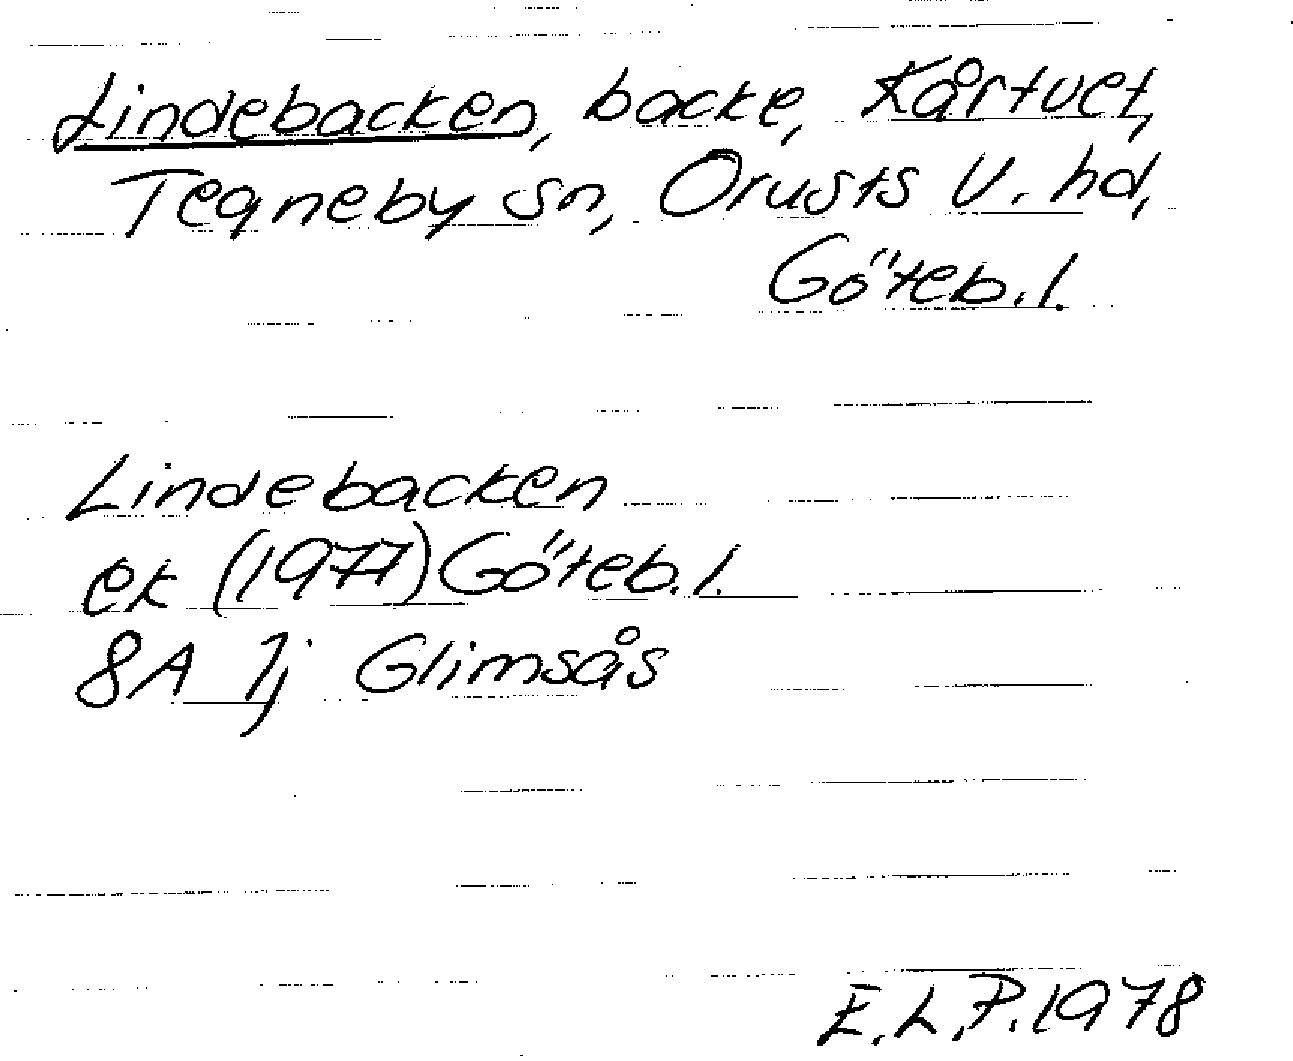 Lindebacken, backe, Kårtvet,
Tegneby sn, Orusts V. hd,
Göteb. l.
Lindebacken
ek (1977) Göteb. l.
8A 7j Glimsås
E.L.P. 1978